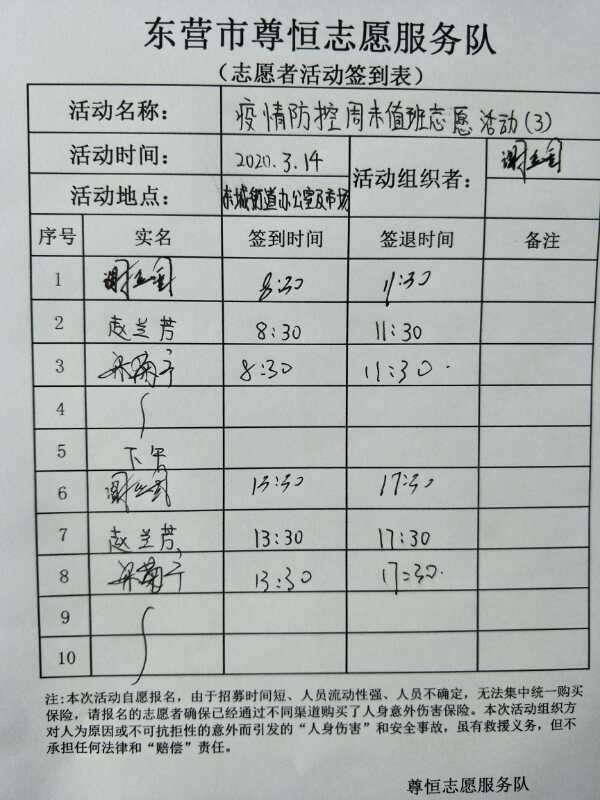 东营市尊恒志愿服务队
（志愿者活动签到表）
活动名称： 疫情防控周末值班志愿活动(3)
活动时间： 2020.3.14
活动组织者：
活动地点： 东城街道办公室及市场
序号 实名 签到时间 签退时间 备注
1 8:30 11:30
2 赵兰芳 8:30 11:30
3 8:30 11:30
4
5 下午
6 13:30 17:30
7 赵兰芳 13:30 17:30
8 13:30 17:30
9
10
注:本次活动自愿报名，由于招募时间短、人员流动性强、人员不确定，无法集中统一购买
保险，请报名的志愿者确保已经通过不同渠道购买了人身意外伤害保险。本次活动组织方
对人为原因或不可抗拒性的意外而引发的“人身伤害”和安全事故，虽有救援义务，但不
承担任何法律和“赔偿”责任。
尊恒志愿服务队